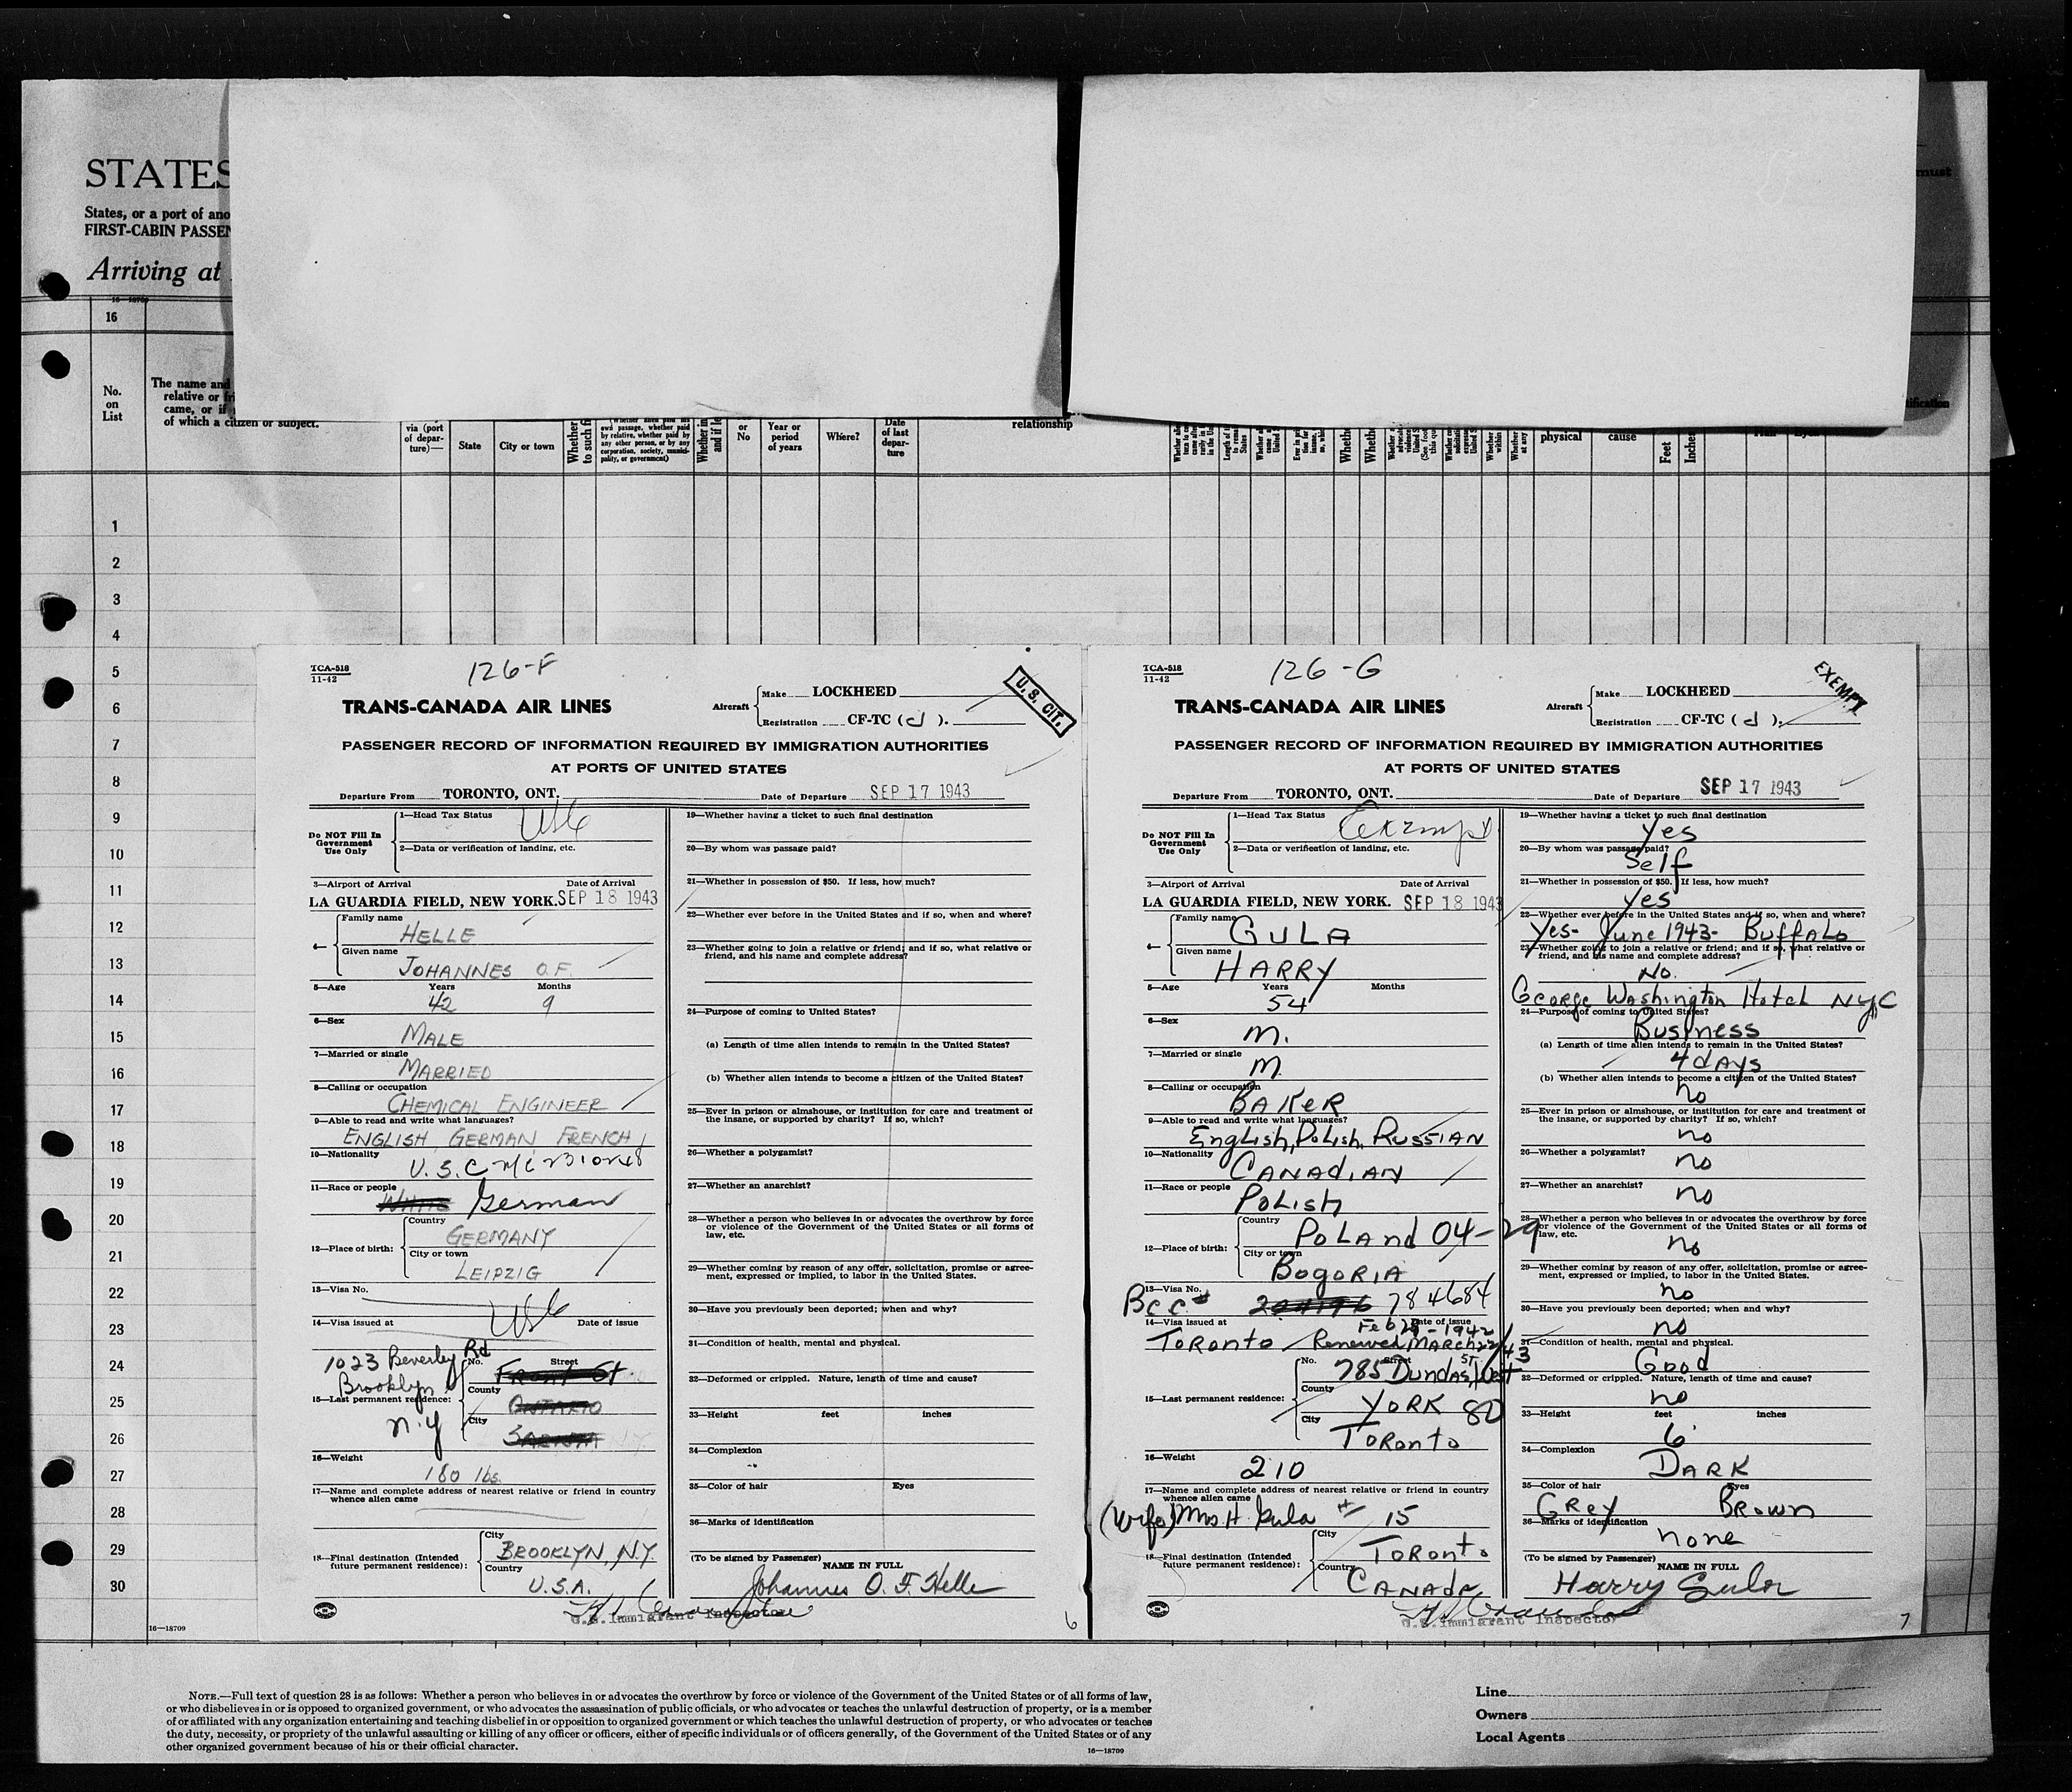 STATES
States, or a port of ano
FIRST-CABIN PASSEN
Arriving at
must
16—18709
16
No.
on
List
The name and
relative or fri
came, or if
of which a citizen or subject.
via (port
of depar-
ture)—
State
City or town
Whether
to such fi
own passage, whether paid
by relative, whether paid by
any other person, or by any
corporation, society, munici-
pality, or government)
or
No
Year or
period
of years
Where?
Date
of last
depar-
ture
relationship
physical
cause
Feet
Inches
1
2
3
4
5
6
7
8
9
10
11
12
13
14
15
16
17
18
19
20
21
22
23
24
25
26
27
28
29
30
16—18709
TCA-518
11-42
126-F
U. S. CIT.
TRANS-CANADA AIR LINES
Aircraft
Make LOCKHEED
Registration CF-TC ( d ).
PASSENGER RECORD OF INFORMATION REQUIRED BY IMMIGRATION AUTHORITIES
AT PORTS OF UNITED STATES
Departure From TORONTO, ONT. Date of Departure SEP 17 1943
Do NOT Fill In
Government
Use Only
1—Head Tax Status USC
2—Data or verification of landing, etc.
3—Airport of Arrival Date of Arrival
LA GUARDIA FIELD, NEW YORK. SEP 18 1943
4— Family name
HELLE
Given name
JOHANNES O.F.
5—Age Years Months
42 9
6—Sex
MALE
7—Married or single
MARRIED
8—Calling or occupation
CHEMICAL ENGINEER
9—Able to read and write what languages?
ENGLISH GERMAN FRENCH
10—Nationality
U.S.C
11—Race or people
German
12—Place of birth:
Country
GERMANY
City or town
LEIPZIG
13—Visa No.
USC
14—Visa issued at Date of issue
1023 Beverley Rd
Brooklyn
N.Y
15—Last permanent residence:
No. Street
Front St
County
ONTARIO
City
SARNIA
16—Weight
180 lbs.
17—Name and complete address of nearest relative or friend in country
whence alien came
18—Final destination (Intended
future permanent residence):
City
BROOKLYN, N.Y.
Country
U.S.A.
19—Whether having a ticket to such final destination
20—By whom was passage paid?
21—Whether in possession of $50. If less, how much?
22—Whether ever before in the United States and if so, when and where?
23—Whether going to join a relative or friend; and if so, what relative or
friend, and his name and complete address?
24—Purpose of coming to United States?
(a) Length of time alien intends to remain in the United States?
(b) Whether alien intends to become a citizen of the United States?
25—Ever in prison or almshouse, or institution for care and treatment of
the insane, or supported by charity? If so, which?
26—Whether a polygamist?
27—Whether an anarchist?
28—Whether a person who believes in or advocates the overthrow by force
or violence of the Government of the United States or all forms of
law, etc.
29—Whether coming by reason of any offer, solicitation, promise or agree-
ment, expressed or implied, to labor in the United States.
30—Have you previously been deported; when and why?
31—Condition of health, mental and physical.
32—Deformed or crippled. Nature, length of time and cause?
33—Height feet inches
34—Complexion
35—Color of hair Eyes
36—Marks of identification
(To be signed by Passenger) NAME IN FULL
Johannes O. F. Helle
U.S. Immigrant Inspector
6
TCA-518
11-42
126-G
EXEMPT
TRANS-CANADA AIR LINES
Aircraft
Make LOCKHEED
Registration CF-TC ( d ).
PASSENGER RECORD OF INFORMATION REQUIRED BY IMMIGRATION AUTHORITIES
AT PORTS OF UNITED STATES
Departure From TORONTO, ONT. Date of Departure SEP 17 1943
Do NOT Fill In
Government
Use Only
1—Head Tax Status Exempt
2—Data or verification of landing, etc.
3—Airport of Arrival Date of Arrival
LA GUARDIA FIELD, NEW YORK. SEP 18 1943
4— Family name
GULA
Given name
HARRY
5—Age Years Months
54
6—Sex
M.
7—Married or single
M.
8—Calling or occupation
BAKER
9—Able to read and write what languages?
English, Polish, Russian
10—Nationality
CANADIAN
11—Race or people
Polish
12—Place of birth:
Country
Poland 04-29
City or town
BogoRIA
13—Visa No.
Bcc# 784684
14—Visa issued at Date of issue
Feb 28-1942
Toronto Renewed March 22/43
15—Last permanent residence:
No. Street
785 Dundas St West
County
York 80
City
Toronto
16—Weight
210
17—Name and complete address of nearest relative or friend in country
whence alien came
(Wife) Mrs H. Gula # 15
18—Final destination (Intended
future permanent residence):
City
Toronto
Country
Canada
19—Whether having a ticket to such final destination
Yes
20—By whom was passage paid?
Self
21—Whether in possession of $50. If less, how much?
Yes
22—Whether ever before in the United States and if so, when and where?
Yes- June 1943- Buffalo
23—Whether going to join a relative or friend; and if so, what relative or
friend, and his name and complete address?
No.
George Washington Hotel NYC
24—Purpose of coming to United States?
Business
(a) Length of time alien intends to remain in the United States?
4 days
(b) Whether alien intends to become a citizen of the United States?
no
25—Ever in prison or almshouse, or institution for care and treatment of
the insane, or supported by charity? If so, which?
no
26—Whether a polygamist?
no
27—Whether an anarchist?
no
28—Whether a person who believes in or advocates the overthrow by force
or violence of the Government of the United States or all forms of
law, etc.
no
29—Whether coming by reason of any offer, solicitation, promise or agree-
ment, expressed or implied, to labor in the United States.
no
30—Have you previously been deported; when and why?
no
31—Condition of health, mental and physical.
Good
32—Deformed or crippled. Nature, length of time and cause?
no
33—Height feet inches
6'
34—Complexion
DARK
35—Color of hair Eyes
Grey Brown
36—Marks of identification
none
(To be signed by Passenger) NAME IN FULL
Harry Gula
U.S. Immigrant Inspector
7
NOTE.—Full text of question 28 is as follows: Whether a person who believes in or advocates the overthrow by force or violence of the Government of the United States or of all forms of law,
or who disbelieves in or is opposed to organized government, or who advocates the assassination of public officials, or who advocates or teaches the unlawful destruction of property, or is a member
of or affiliated with any organization entertaining and teaching disbelief in or opposition to organized government or which teaches the unlawful destruction of property, or who advocates or teaches
the duty, necessity, or propriety of the unlawful assaulting or killing of any officer or officers, either of specific individuals or of officers generally, of the Government of the United States or of any
other organized government because of his or their official character.
16—18709
Line
Owners
Local Agents